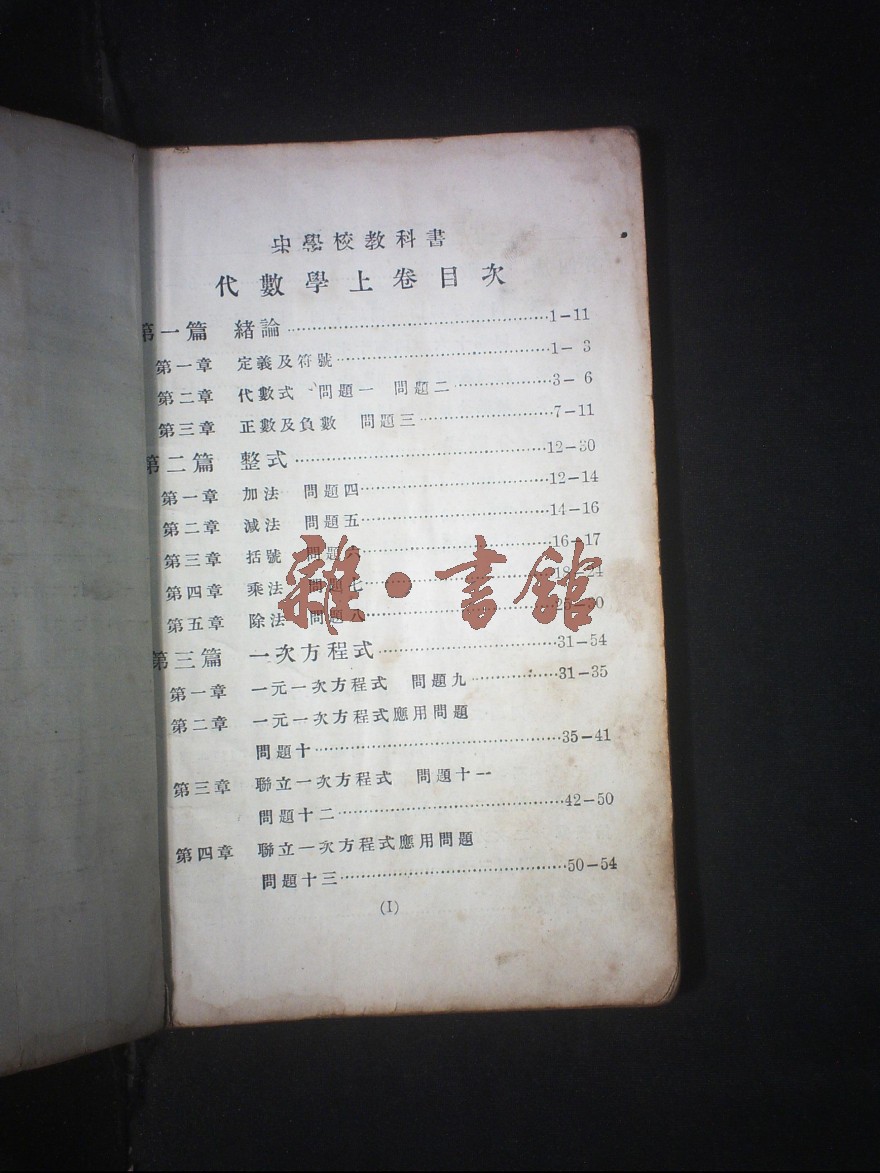 中學校教科書
代數學上卷目次
第一篇 緒論……1-11
第一章 定義及符號……1-3
第二章 代數式 問題一 問題二……3-6
第三章 正數及負數 問題三……7-11
第二篇 整式……12-30
第一章 加法 問題四……12-14
第二章 減法 問題五……14-16
第三章 括號 問題六……16-17
第四章 乘法 問題七……18-24
第五章 除法 問題八……25-30
雜·書館
第三篇 一次方程式……31-54
第一章 一元一次方程式 問題九……31-35
第二章 一元一次方程式應用問題
問題十……35-41
第三章 聯立一次方程式 問題十一
問題十二……42-50
第四章 聯立一次方程式應用問題
問題十三……50-54
(I)